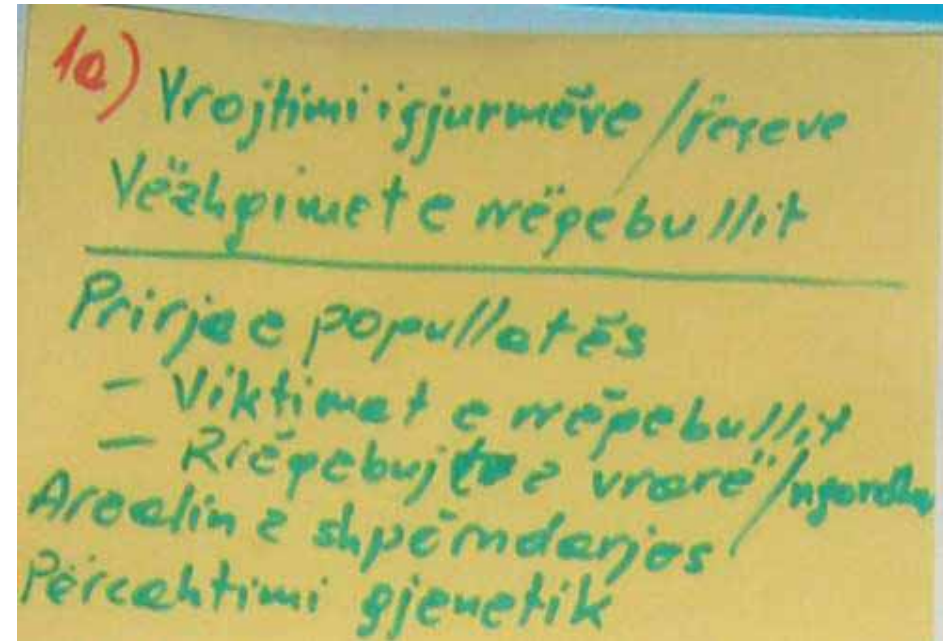 1a) Vrojtimi i gjurmëve / feçeve
Vëzhgimet e rrëqebullit
Prirja e popullatës
- Viktimat e rrëqebullit
- Rrëqebujt e vrarë / ngordhur
Arealin e shpërndarjes
Përcaktimi gjenetik